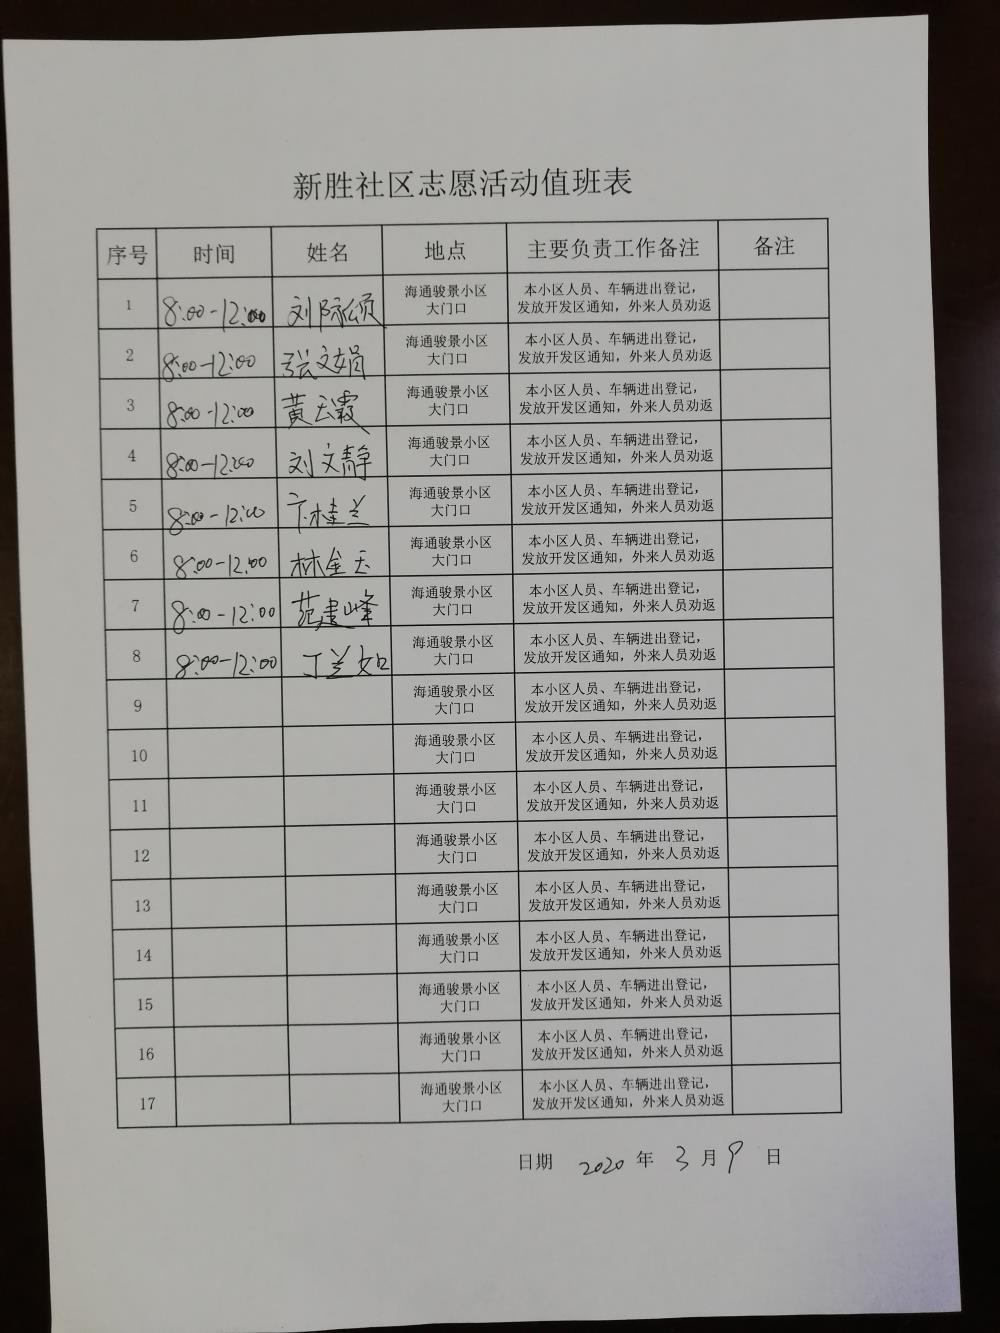 新胜社区志愿活动值班表
序号 时间 姓名 地点 主要负责工作备注 备注
1 8:00-12:00 刘 海通骏景小区 本小区人员、车辆进出登记，
大门口 发放开发区通知，外来人员劝返
2 8:00-12:00 张文娟 海通骏景小区 本小区人员、车辆进出登记，
大门口 发放开发区通知，外来人员劝返
3 8:00-12:00 黄天霞 海通骏景小区 本小区人员、车辆进出登记，
大门口 发放开发区通知，外来人员劝返
4 8:00-12:00 刘文静 海通骏景小区 本小区人员、车辆进出登记，
大门口 发放开发区通知，外来人员劝返
5 8:00-12:00 卞桂兰 海通骏景小区 本小区人员、车辆进出登记，
大门口 发放开发区通知，外来人员劝返
6 8:00-12:00 林金玉 海通骏景小区 本小区人员、车辆进出登记，
大门口 发放开发区通知，外来人员劝返
7 8:00-12:00 范建峰 海通骏景小区 本小区人员、车辆进出登记，
大门口 发放开发区通知，外来人员劝返
8 8:00-12:00 丁兰如 海通骏景小区 本小区人员、车辆进出登记，
大门口 发放开发区通知，外来人员劝返
9 海通骏景小区 本小区人员、车辆进出登记，
大门口 发放开发区通知，外来人员劝返
10 海通骏景小区 本小区人员、车辆进出登记，
大门口 发放开发区通知，外来人员劝返
11 海通骏景小区 本小区人员、车辆进出登记，
大门口 发放开发区通知，外来人员劝返
12 海通骏景小区 本小区人员、车辆进出登记，
大门口 发放开发区通知，外来人员劝返
13 海通骏景小区 本小区人员、车辆进出登记，
大门口 发放开发区通知，外来人员劝返
14 海通骏景小区 本小区人员、车辆进出登记，
大门口 发放开发区通知，外来人员劝返
15 海通骏景小区 本小区人员、车辆进出登记，
大门口 发放开发区通知，外来人员劝返
16 海通骏景小区 本小区人员、车辆进出登记，
大门口 发放开发区通知，外来人员劝返
17 海通骏景小区 本小区人员、车辆进出登记，
大门口 发放开发区通知，外来人员劝返
日期 2020 年 3 月 9 日